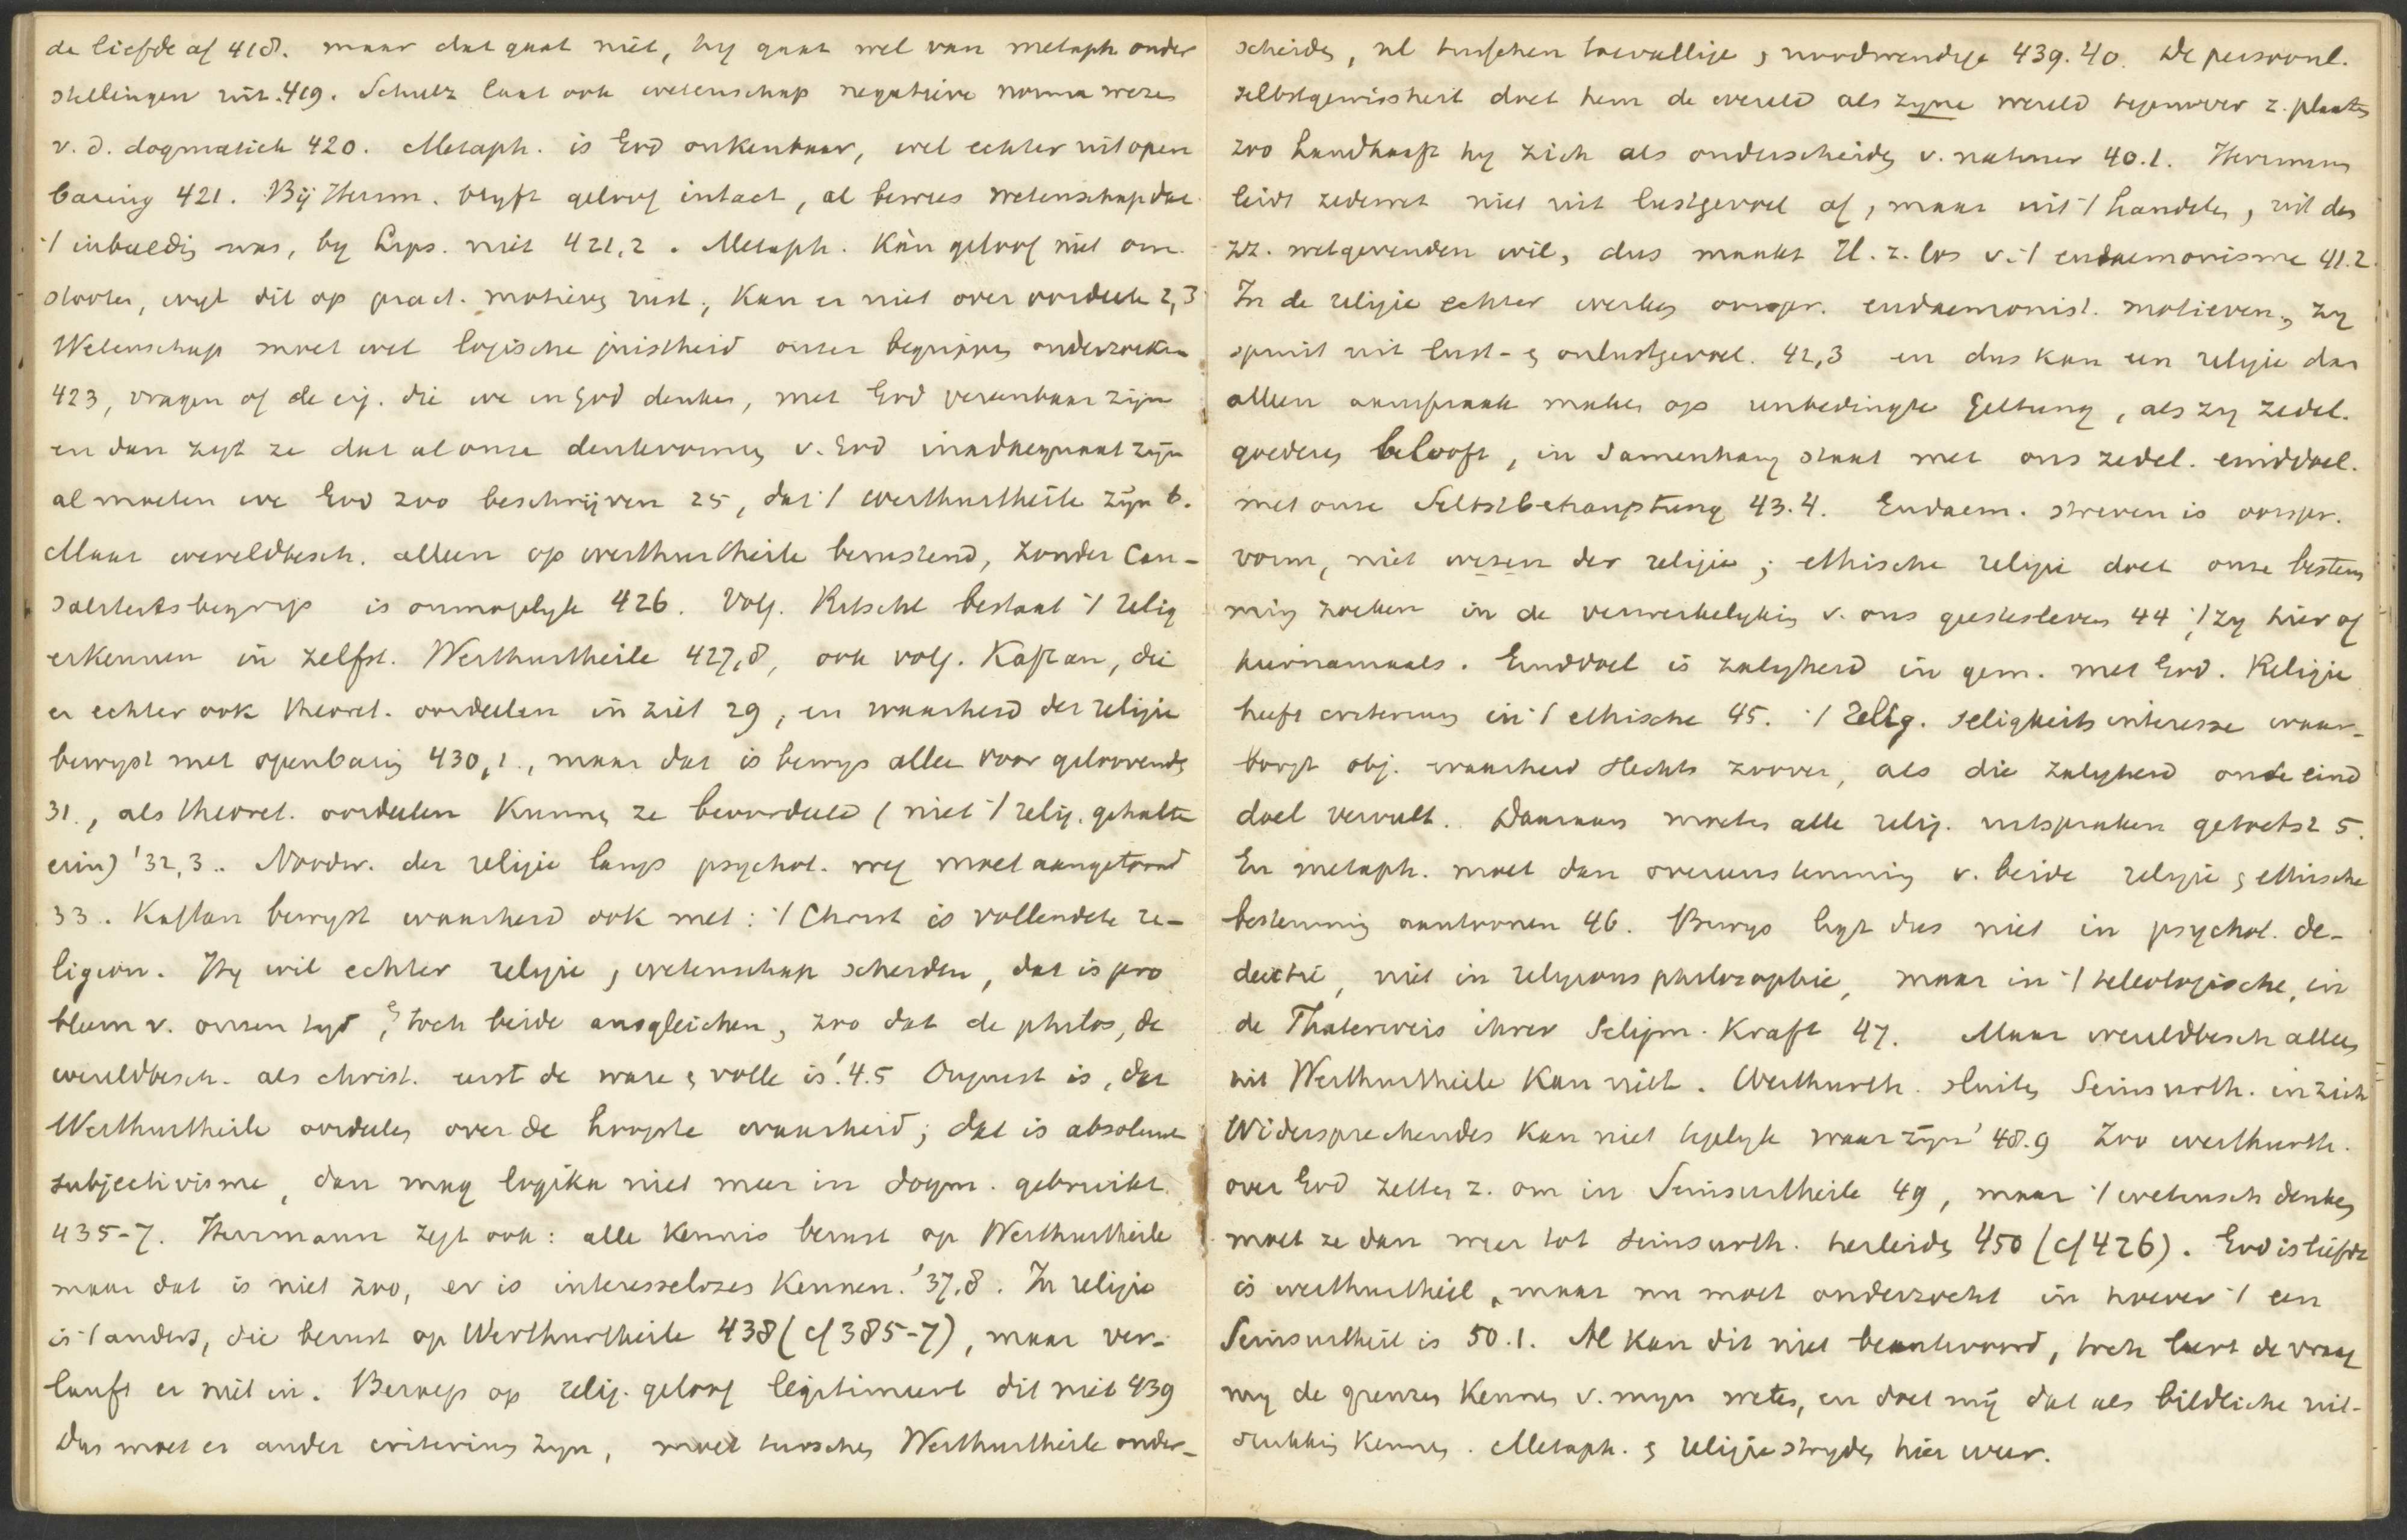 de liefde af 418. maar dat gaat niet, hy gaat wel van metaph onder
stellingen uit. 419. Schulz laat ook wetenschap negatieve norma wezen
v. d. dogmatiek 420. Metaph. is God onkenbaar, wel echter uit open
baring 421. Bij Herrm. blyft geloof intact, al bewees wetenschap dat
't inbeeldig was, by Lips. niet 421,2. Metaph. Kàn geloof niet om
stooten, wyl dit op pract. motieven rust, Kan er niet over oordeelen 2,3
Wetenschap moet wel logische juistheid onzer begrippen onderzoeken
423, vragen of de eig. die we in God denken, met God vereenbaar zijn
en dan zegt ze dat al onze denkvormen v. God inadaequaat zijn
al moeten we God zoo beschrijven 25, dat 't werthurtheile zijn 6.
Maar wereldbesch. alleen op werthurtheile berustend, zonder Cau-
saliteitsbegrip is onmogelyk 426. Volg. Ritschl bestaat 't relig
erkennen in zelfst. Werthurtheile 427,8, ook volg. Kaftan, die
er echter ook theoret. oordeelen in ziet 29, en waarheid der religie
bewyst met openbaring 430,1., maar dat is bewys alleen voor geloovenden
31., als theoret. oordeelen Kunnen ze beoordeeld (niet 't relig. gehalte
erin) '32,3.. Noodw. der religie langs psychol. weg moet aangetoond
33. Kaftan bewyst waarheid ook met: 't Christ is vollendete re-
ligion. Hy wil echter religie, wetenschap scheiden, dat is pro
bleem v. onzen tyd, & toch beide ausgleichen, zoo dat de philos, de
wereldbesch. als christ. eerst de ware & volle is'. 4.5 Onjuist is, dat
Werthurtheile oordeelen over de hoogste waarheid; dat is absoluut
subjectivisme, dan mag logika niet meer in dogm. gebruikt.
435-7. Herrmann zegt ook: alle Kennis berust op Werthurtheile
maar dat is niet zoo, er is interesseloses Kennen.' 37,8. In religie
is 't anders, die berust op Werthurtheile 438 (cf 385-7), maar ver-
lauft er niet in. Beroep op relig. geloof legitimeert dit niet 439
dus moet er ander criterium zyn, moet tusschen Werthurtheile onder-
scheiden, nl tusschen toevallige & noodwendige 439.40. De persoonl.
selbstgewissheit doet hem de wereld als zyne wereld tegenover z. plaatsen
zoo handhaaft hy zich als onderscheiden v. natuur 40.1. Herrmann
leidt zedewet niet uit lustgevoel af, maar uit 't handelen, uit den
zz. wetgevenden wil, dus maakt H. z. los v. 't eudaemonisme 41.2.
In de religie echter werken oorspr. eudaemonist. motieven, zy
spruit uit lust- & onlustgevoel. 42,3 en dus kan een religie dan
alleen aanspraak maken op unbedingte Geltung, als zy zedel.
goederen belooft, in samenhang staat met ons zedel. einddoel.
met onze Selbstbehauptung 43.4. Eudaem. streven is oorspr.
vorm, niet wezen der religie; ethische religie doet onze bestem
ming zoeken in de verwerkelyking v. ons geestesleven 44 't zy hier of
hiernamaals. Einddoel is zaligheid in gem. met God. Religie
heeft criterium in 't ethische 45. 't Relig. seligkeitsinteresse waar-
borgt obj. waarheid slechts zoover, als die zaligheid onze eind
doel vervult. Daaraan moeten alle relig. uitspraken getoetst 5.
En metaph. moet dan overeenstemming v. beide religie & ethische
bestemming aantoonen 46. Bewys ligt dus niet in psychol. de-
ductie, niet in religionsphilosophie, maar in 't teleologische, in
de Thaterweis ihrer Seligm. Kraft 47. Maar wereldbesch alleen
uit Werthurtheile Kan niet. Werthurth. sluiten Seinsurth. in zich
Widersprechendes Kan niet tegelyk waar zijn' 48.9 Zoo werthurth.
over God zetten z. om in Seinsurtheile 49, maar 't wetensch denken
moet ze dan weer tot seinsurth. herleiden 450 (cf 426). God is liefde
is werthurtheil, maar nu moet onderzocht in hoever 't een
Seinsurtheil is 50.1. Al Kan dit niet beantwoord, toch leert de vraag
my de grenzen Kennen v. myn weten, en doet mij dat als bildliche uit-
drukking Kennen. Metaph. & religie stryden hier weer.